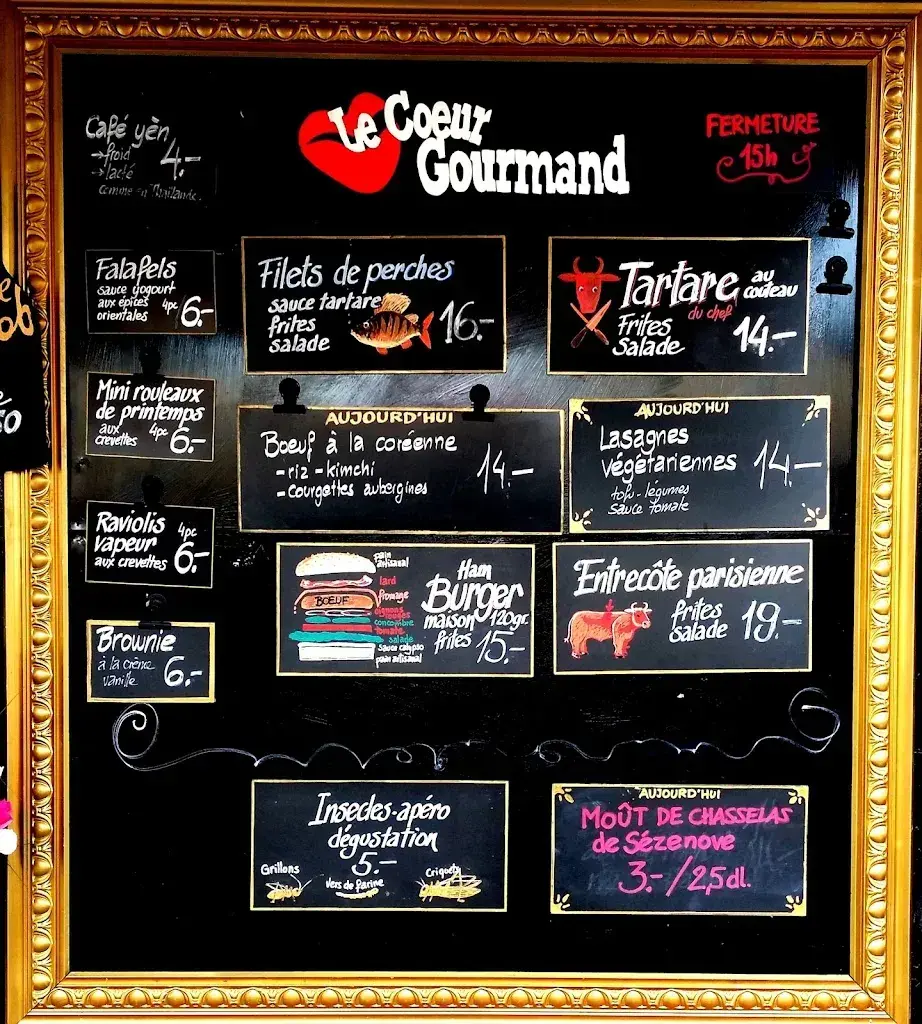 Le Coeur
Gourmand
FERMETURE
15h
Café yèn
→froid
→lacté
4.-
comme en Thaïlande.
Falafels
sauce yogourt
aux épices
orientales
4pc 6.-
Mini rouleaux
de printemps
aux
crevettes
4pc 6.-
Raviolis
vapeur
aux crevettes
4pc
6.-
Brownie
à la crème
vanille
6.-
Filets de perches
sauce tartare
frites
salade
16.-
Tartare au
couteau
du chef
Frites
Salade
14.-
AUJOURD'HUI
Boeuf à la coréenne
-riz -kimchi
-courgettes aubergines
14.-
AUJOURD'HUI
Lasagnes
végétariennes
tofu-légumes
sauce tomate
14.-
pain
artisanal
lard
fromage
BOEUF
oignons
rouges
concombre
tomate
salade
sauce calypso
pain artisanal
Ham
Burger
maison 120gr.
frites 15.-
Entrecôte parisienne
frites
salade
19.-
Insectes-apéro
dégustation
5.-
Grillons
vers de farine
Criquets
AUJOURD'HUI
MOÛT DE CHASSELAS
de Sézenove
3.-/2,5dl.